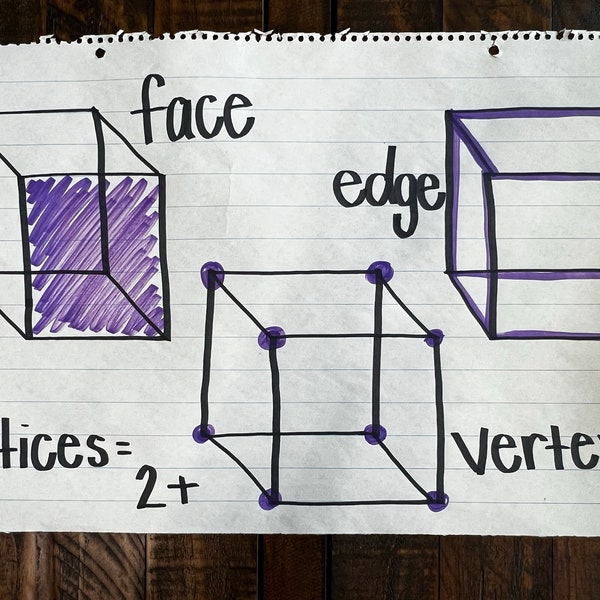 face
edge
tices=
2+
verte